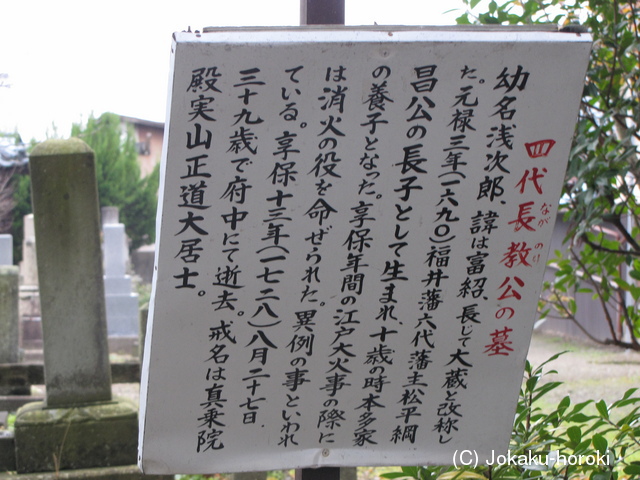 四代長教公の墓
ながのり
幼名浅次郎、諱は富紹、長じて大蔵と改称し
た。元禄三年(一六九〇)福井藩六代藩主松平綱
昌公の長子として生まれ、十歳の時本多家
の養子となった。享保年間の江戸大火事の際に
は消火の役を命ぜられた。異例の事といわれ
ている。享保十三年(一七二八)八月二十七日.
三十九歳で府中にて逝去。戒名は真乗院
殿実山正道大居士。
(C) Jokaku-horoki